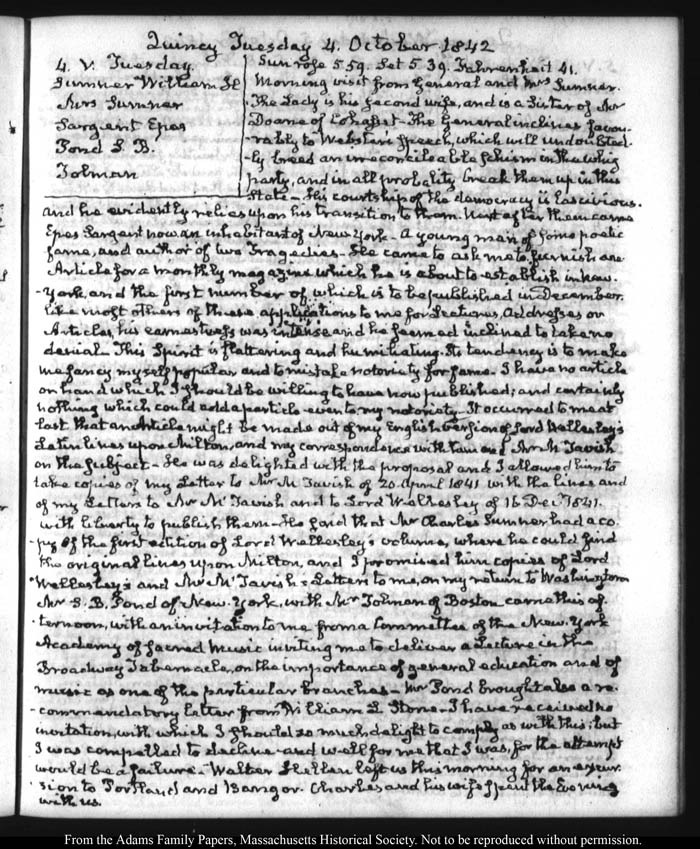 Quincy Tuesday 4. October 1842
4. V. Tuesday.
Sumner William H
Mrs Sumner
Sargent Epes
Pond S. B.
Tolman
Sun rose 5 59. Set 5 39. Fahrenheit 41.
Morning visit from General and Mrs Sumner.
The Lady is his second wife, and is a Sister of Mr
Doane of Cohasset. The General inclines favou-
rably to Webster's speech, which will undoubted-
ly breed an irreconcileable schism in the whig
party, and in all probality break them up in this
State. His courtship of the democracy is lascivious.
and he evidently relies upon his transition to them. Next after them came
Epes Sargent now an inhabitant of New York. A young man of some poetic
fame, and author of two Tragedies. He came to ask me to furnish an
Article for a monthly magazine which he is about to establish in New-
-York, and the first number of which is to be published in December.
Like most others of these applications to me for Lectures, Addresses or
Articles, his earnestness was intense and he seemed inclined to take no
denial. This Spirit is flattering and humiliating. Its tendency is to make
me fancy myself popular and to mistake notoriety for fame. I have no article
on hand which I should be willing to have now published; and certainly
nothing which could add a particle even to my notoriety. It occurred to me at
last that an Article might be made out of my English version of Lord Wellesley's
Latin lines upon Milton, and my correspondence with him and Mr McTavish
on the subject. He was delighted with the proposal and I allowed him to
take copies of my Letter to Mr McTavish of 20 April 1841 with the lines and
of my Letters to Mr McTavish and to Lord Wellesley of 16 Dec. 1841.
with liberty to publish them. He said that Mr Charles Sumner had a co
-py of the first edition of Lord Wellesley's volume, where he could find
the original lines upon Milton, and I promised him copies of Lord
Wellesley's and Mr McTavish's Letters to me, on my return to Washington
Mr S. B. Pond of New-York, with Mr Tolman of Boston came this af-
-ternoon, with an invitation to me from a Committee of the New-York
Academy of Sacred Music inviting me to deliver a Lecture in the
Broadway Tabernacle, on the importance of general education and of
music as one of the particular branches. Mr Pond brought also a re-
-commendatory letter from William L. Stone. I have received no
invitation, with which I should so much delight to comply as with this; but
I was compelled to decline and well for me that I was, for the attempt
would be a failure. Walter Hellen left us this morning for an excur-
-sion to Portland and Bangor. Charles and his wife spent the Evening
with us.
From the Adams Family Papers, Massachusetts Historical Society. Not to be reproduced without permission.